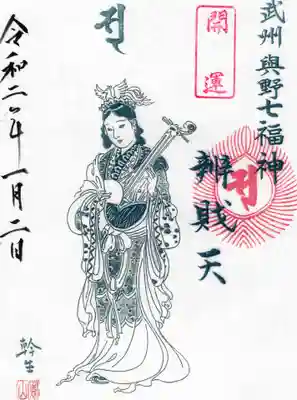 武州與野七福神
開運
辨財天
令和二年一月二日
幹生